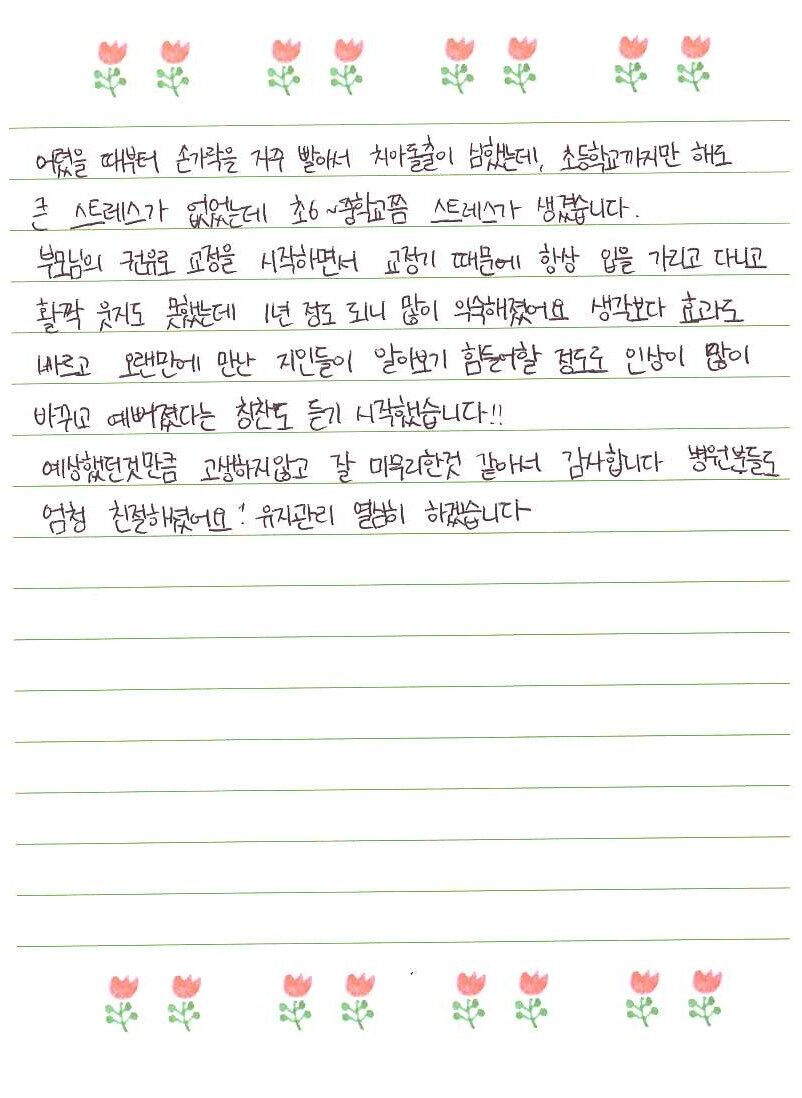 어렸을 때부터 손가락을 자주 빨아서 치아돌출이 심했는데, 초등학교까지만 해도
큰 스트레스가 없었는데 초6~중학교쯤 스트레스가 생겼습니다.
부모님의 권유로 교정을 시작하면서 교정기 때문에 항상 입을 가리고 다니고
활짝 웃지도 못했는데 1년 정도 되니 많이 익숙해졌어요 생각보다 효과도
빠르고 오랜만에 만난 지인들이 알아보기 힘들어할 정도로 인상이 많이
바뀌고 예뻐졌다는 칭찬도 듣기 시작했습니다!!
예상했던것만큼 고생하지않고 잘 마무리한것 같아서 감사합니다 병원분들도
엄청 친절해셨어요! 유지관리 열심히 하겠습니다